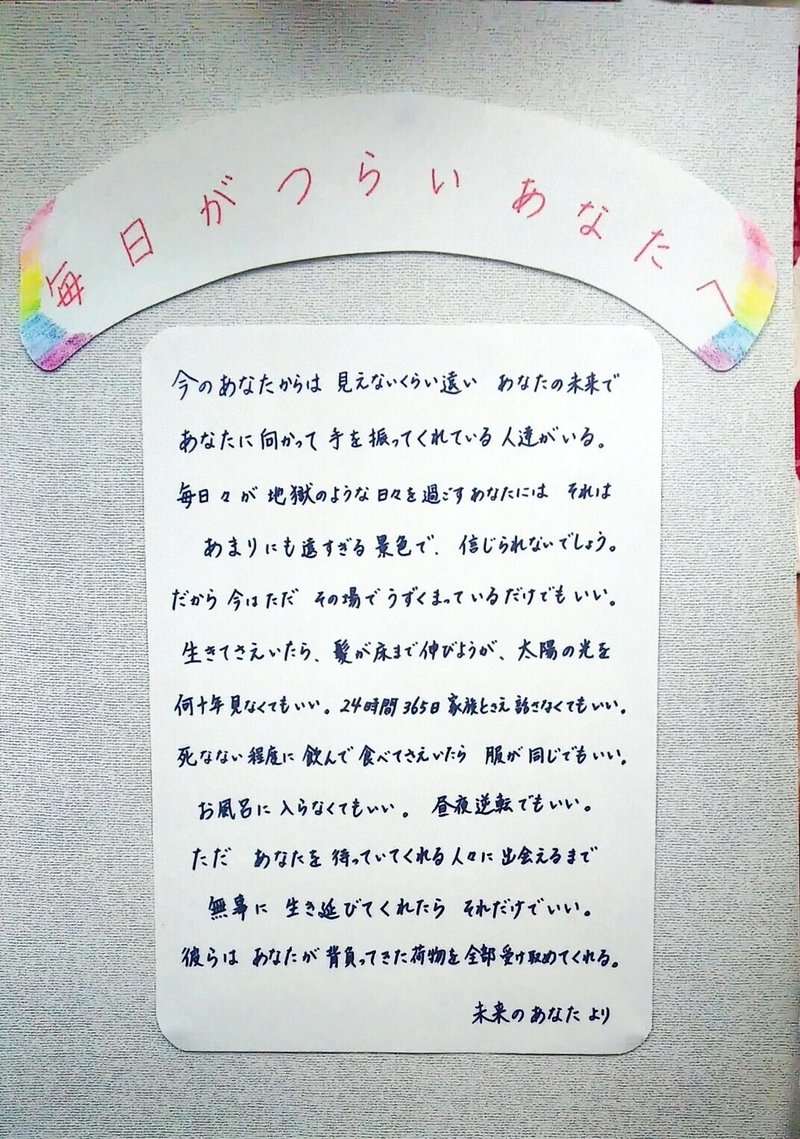 毎日がつらいあなたへ
今のあなたからは 見えないくらい遠い あなたの未来で
あなたに向かって 手を振ってくれている人達がいる。
毎日々が 地獄のような日々を過ごすあなたには それは
あまりにも遠すぎる景色で、信じられないでしょう。
だから 今はただ その場でうずくまっているだけでもいい。
生きてさえいたら、髪が床まで伸びようが、太陽の光を
何十年見なくてもいい。24時間365日 家族とさえ話さなくてもいい。
死なない程度に 飲んで食べてさえいたら 服が同じでもいい。
お風呂に入らなくてもいい。 昼夜逆転でもいい。
ただ あなたを待っていてくれる人々に出会えるまで
無事に 生き延びてくれたら それだけでいい。
彼らは あなたが背負ってきた荷物を全部受け取めてくれる。
未来のあなたより